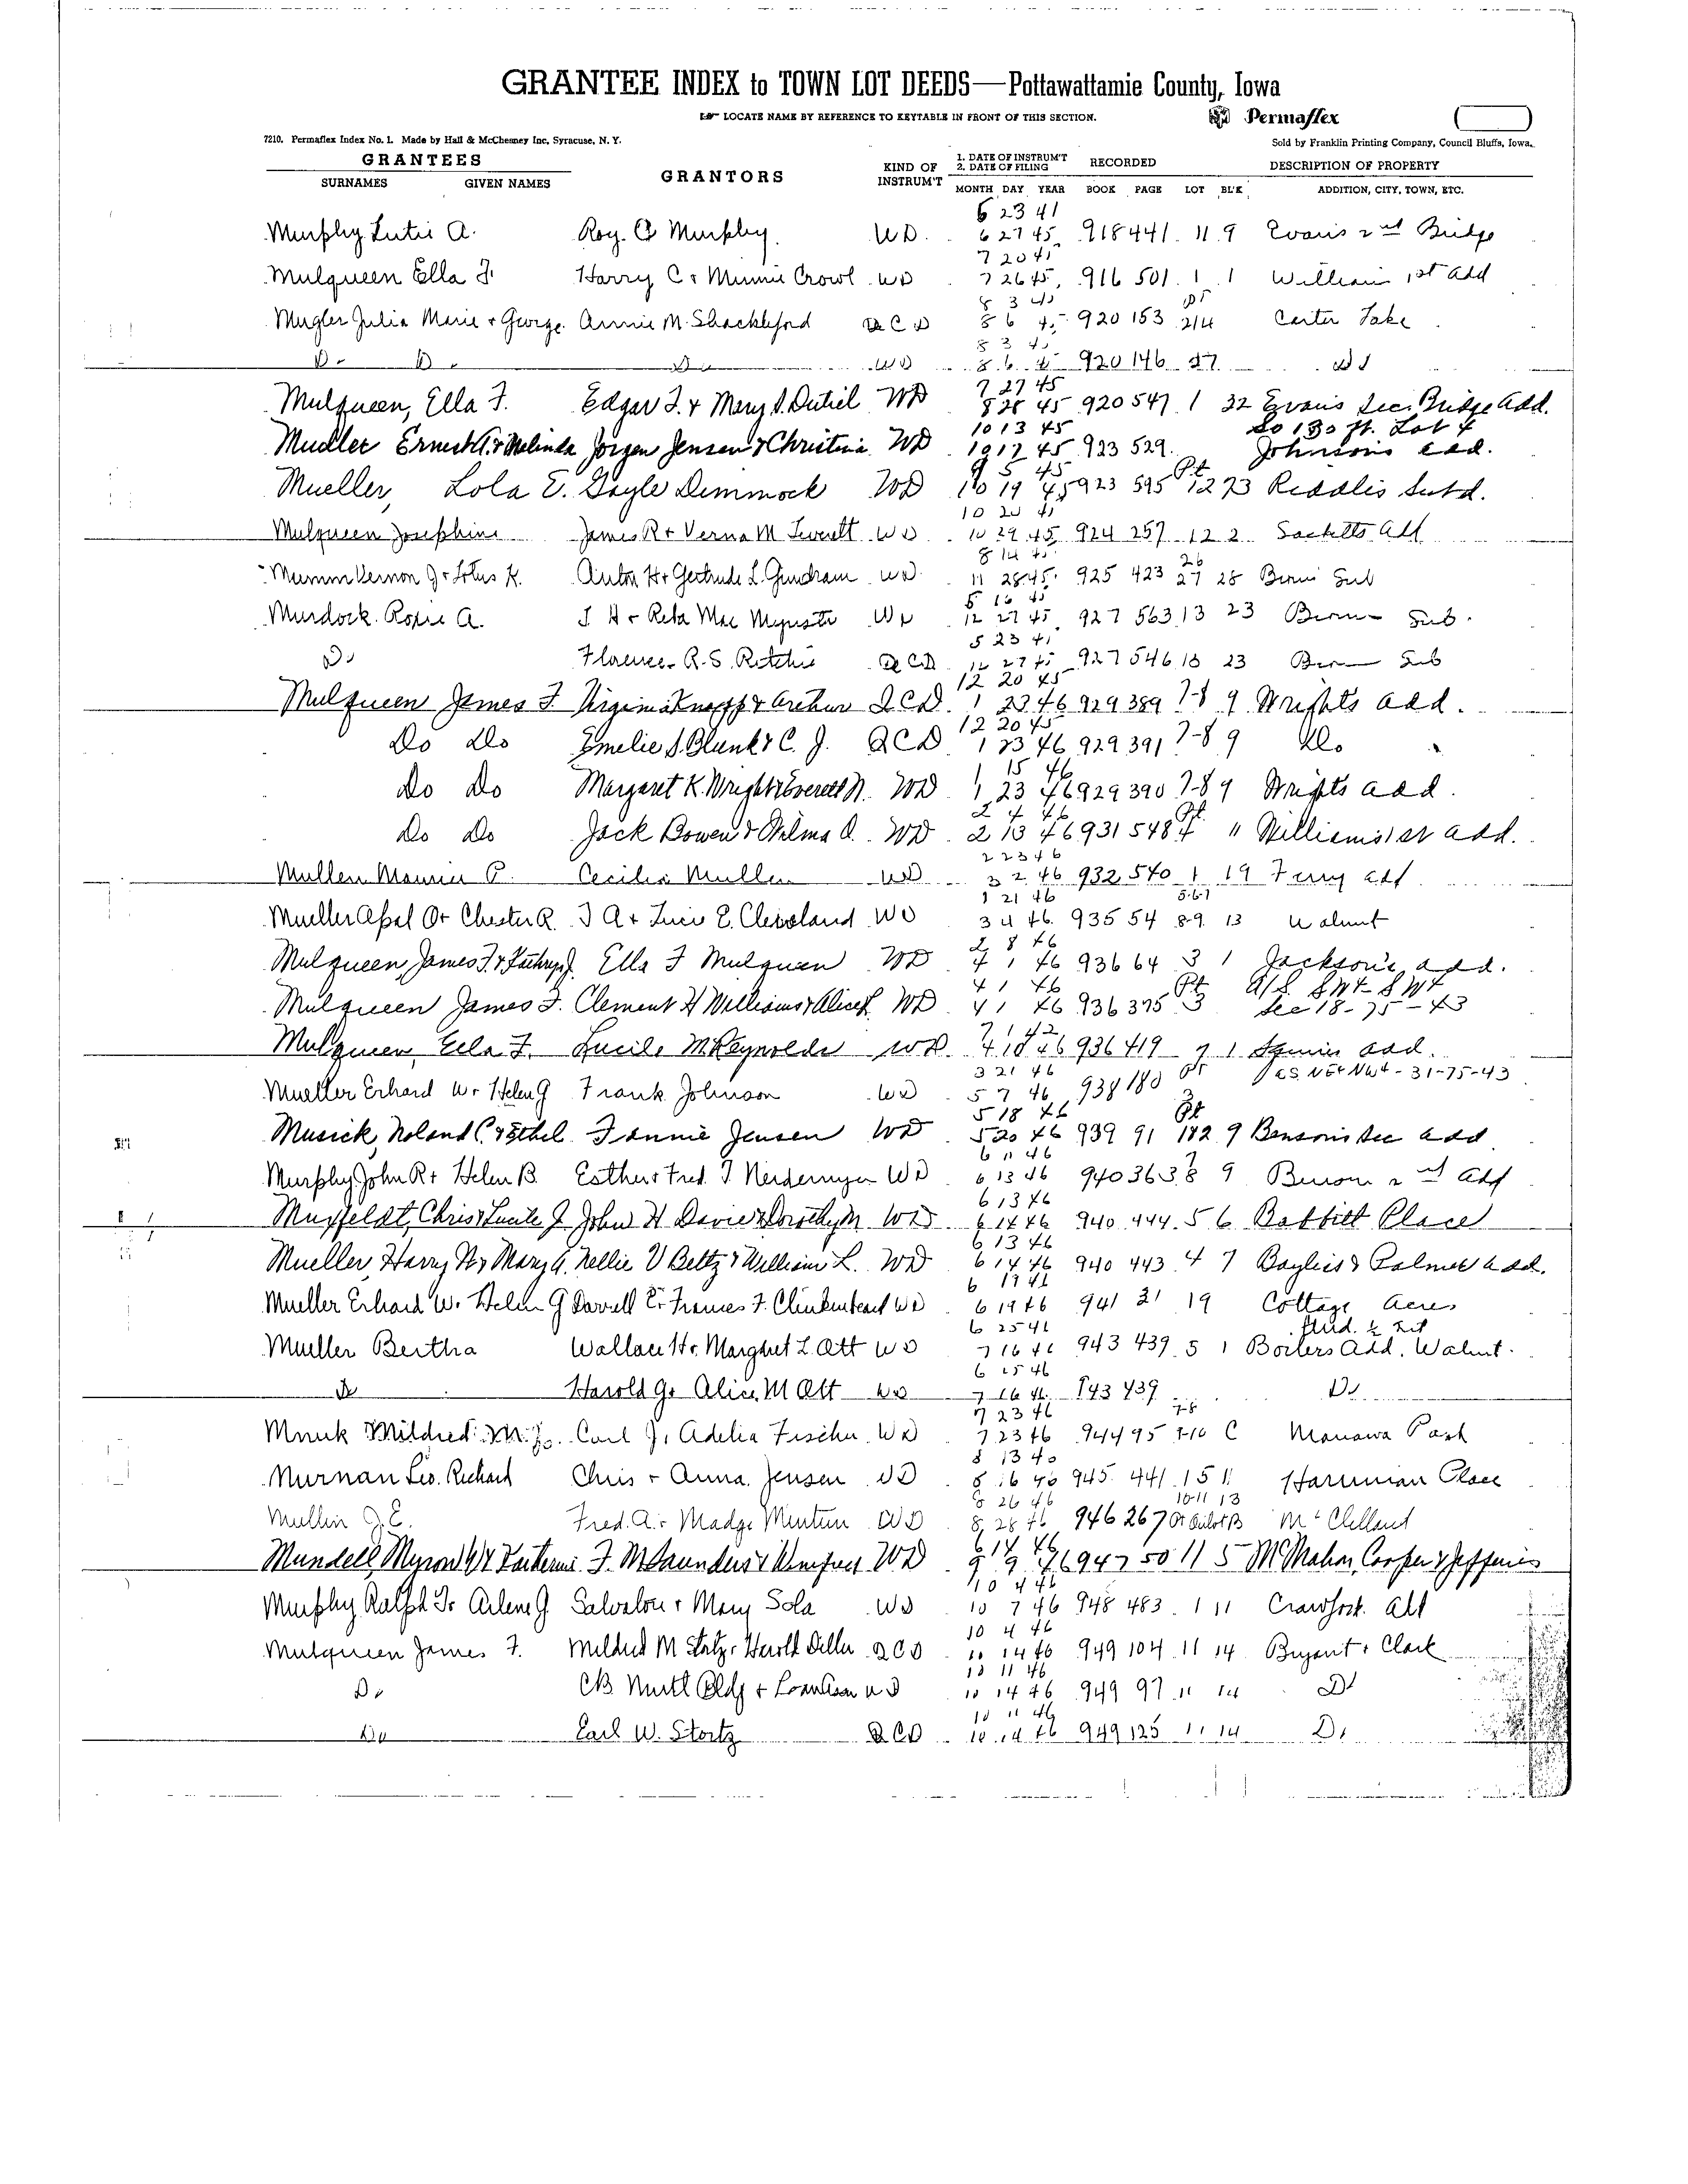 GRANTEE INDEX to TOWN LOT DEEDS—Pottawattamie County, Iowa
LOCATE NAME BY REFERENCE TO KEYTABLE IN FRONT OF THIS SECTION.
Permaflex
7210. Permaflex Index No. 1. Made by Hall & McChesney Inc, Syracuse, N. Y.
Sold by Franklin Printing Company, Council Bluffs, Iowa.
GRANTEES GRANTORS KIND OF INSTRUM'T 1. DATE OF INSTRUM'T 2. DATE OF FILING RECORDED DESCRIPTION OF PROPERTY
SURNAMES GIVEN NAMES MONTH DAY YEAR BOOK PAGE LOT BL'K ADDITION, CITY, TOWN, ETC.
6 23 41
Murphy Lutie A. Roy C Murphy WD. 6 27 45 918 441 11 9 Evans 2nd Bridge
7 20 45
Mulqueen Ella F. Harry C + Minnie Crowl WD 7 26 45 916 501 1 1 William 1st Add
8 3 45 pt
Mugler Julia Marie + George Annie M. Shackleford QCD 8 6 45 920 153 214 Carter Lake
8 3 45
Do Do Do WD 8 6 45 920 146 27 Do
7 27 45
Mulqueen, Ella F. Edgar F. & Mary D. Dutiel WD 8 28 45 920 547 1 32 Evans Sec. Bridge Add.
10 13 45 So 130 ft. Lot 4
Mueller Ernest T. & Melinda Jorgen Jensen & Christina WD 10 17 45 923 529 Johnsons add.
9 5 45 Pt
Mueller, Lola E. Gayle Dimmock WD 10 19 45 923 595 12 73 Riddles Subd.
10 20 45
Mulqueen Josephine James R + Verna M Leverett WD 10 29 45 924 257 12 2 Sacketts Add
8 14 45 26
Mumm Vernon J + Lotus K. Anton H + Gertrude L. WD 11 28 45 925 423 27 28 Sub
5 16 45
Murdock Rosie A. J H + Reta Mae WD 12 27 45 927 563 13 23 Sub.
5 23 41
Do Florence R. S. Ritchie QCD 12 27 45 927 546 18 23 Sub
12 20 45
Mulqueen James F Virginia Knapp & Arthur QCD 1 23 46 929 389 7-8 9 Wrights add.
12 20 45
Do Do Emelie S. Blunk & C. J. QCD 1 23 46 929 391 7-8 9 Do
1 15 46
Do Do Margaret K. Wright & Everett N. WD 1 23 46 929 390 7-8 9 Wrights add.
2 4 46 Pt
Do Do Jack Bowen & Wilma D. WD 2 13 46 931 548 4 11 Williams 1st add.
2 23 46
Mullen Maurice P. Cecilia Mullen WD 3 2 46 932 540 1 19 Ferry Add
1 21 46 5-6-7
Mueller O + Chester R. J A + Lucie E. Cleveland WD 3 4 46 935 54 8-9 13 Walnut
2 8 46
Mulqueen, James F. & Kathryn J. Ella F Mulqueen WD 4 1 46 936 64 3 1 Jackson's add.
4 1 46 Pt A/S SW4-SW4
Mulqueen James F. Clement H Williams & Alice L WD 4 1 46 936 375 3 Sec 18-75-43
7 1 42
Mulqueen Ella F. Lucile McReynolds WD 4 10 46 936 419 7 1 add.
3 21 46 pt AS NE4 NW4-31-75-43
Mueller Erhard W + Helen G Frank Johnson WD 5 7 46 938 180 3
5 18 46 Pt
Musick, Noland C. & Ethel Fannie Jensen WD 5 20 46 939 91 1&2 9 Bensons Sec add
6 11 46 7
Murphy John R + Helen B. Esther & Fred J Neidermyer WD 6 13 46 940 363 8 9 Benson 2nd Add
6 13 46
Muxfeldt, Chris & Lucile J John H Davie & Dorothy M. WD 6 14 46 940 444 5 6 Babbitt Place
6 13 46
Mueller, Harry H & Mary A. Nellie V Beltz & William L. WD 6 14 46 940 443 4 7 Bayliss & Palmer add.
6 19 46
Mueller Erhard W. Helen G Darrell E + Frances F. Clinkenbeard WD 6 19 46 941 21 19 Cottage Acres
6 25 46 Und. ½ Int
Mueller Bertha Wallace H + Margaret L Ott WD 7 16 46 943 439 5 1 Boilers Add. Walnut.
6 25 46
Do Harold G + Alice M Ott WD 7 16 46 943 439 Do
7 23 46 7-8
Mildred M. Carl J. + Adelia Fischer WD 7 23 46 944 95 9-10 C Manawa Park
8 13 46
Murnan Leo Richard Chris + Anna Jensen WD 8 16 46 945 441 15 11 Harriman Place
8 26 46 10-11 13
Mullin J. E. Fred A + Madge Minturn WD 8 28 46 946 267 Pt Outlot B McClelland
6 14 46
Mundell, Myron W & Katherine F. M Saunders & Winifred WD 9 9 46 947 50 11 5 McMahon, Cooper & Jefferies
10 4 46
Murphy Ralph J + Arlene G Salvatore + Mary Sola WD 10 7 46 948 483 1 11 Crawford Add
10 4 46
Mulqueen James F. Mildred M Stortz + Harold Diller QCD 10 14 46 949 104 11 14 Bryant + Clark
10 11 46
Do CB Mutl Bldg + Loan Assn WD 10 14 46 949 97 11 14 Do
10 11 46
Do Earl W. Stortz QCD 10 14 46 949 125 11 14 Do